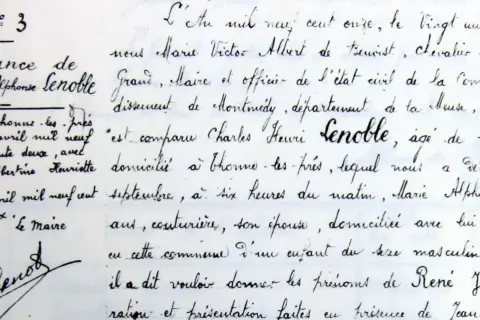 N° 3
ance de
lphonse Lenoble
honne-les-prés
avril mil neuf
te deux, avec
bertine Henriette
ril mil neuf cent
Le Maire
Lenoble
L'An mil neuf cent onze, le Vingt
nous Marie Victor Albert de Benoist, Chevalier
Grand, Maire et officier de l'état civil de la Com
dissement de Montmédy, département de la Meuse,
est comparu Charles Henri Lenoble, âgé de
domicilié à Thonne-les-prés, lequel nous a dé
septembre, à six heures du matin, Marie Alph
ans, couturière, son épouse, domiciliée avec lui
en cette commune d'un enfant du sexe masculin
il a dit vouloir donner les prénoms de René J
ration et présentation faites en présence de Jean